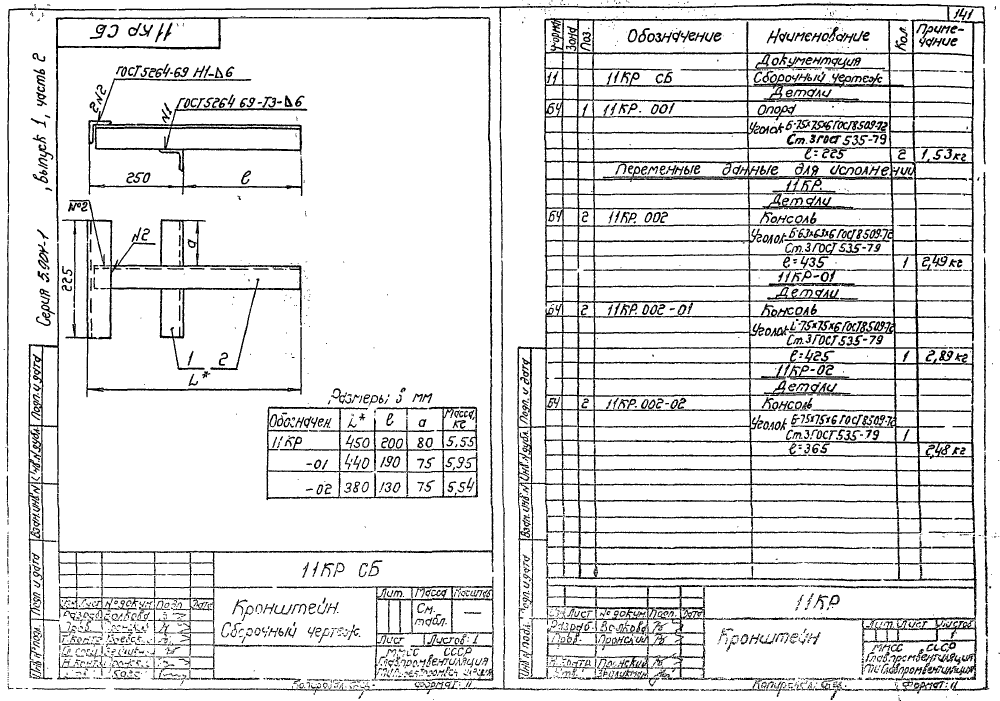 11КР СБ
Серия 5.904-1, выпуск 1, часть 2
ГОСТ 5264-69 Н1-△6
2 N2
ГОСТ 5264 69-Т3-△6
N1
250
ℓ
№2
N2
а
225
1 2
L*
Размеры, в мм
Обозначен. L* ℓ а Масса, кг
11КР 450 200 80 5,55
-01 440 190 75 5,95
-02 380 130 75 5,54
Подп. и дата
Инв. № дубл.
Взам. инв. №
Подп. и дата
Инв. № подл.
11КР СБ
Изм. Лист № докум. Подп. Дата
Разраб. Волкова
Пров. Пронский
Т.контр.
Н.контр. Пронский
Утв.
Кронштейн.
Сборочный чертеж.
Лит. Масса Масштаб
См. табл. —
Лист Листов 1
ММСС СССР
Главпромвентиляция
Копировал: Формат: 11
141
Форма Зона Поз. Обозначение Наименование Кол. Примечание
Документация
11 11КР СБ Сборочный чертеж
Детали
БЧ 1 11КР. 001 Опора
Уголок Б-75х75х6 ГОСТ 8509-72
Ст.3 ГОСТ 535-79
ℓ=225 2 1,53 кг
Переменные данные для исполнений
11КР
Детали
БЧ 2 11КР. 002 Консоль
Уголок Б-63х63х6 ГОСТ 8509-72
Ст.3 ГОСТ 535-79
ℓ=435 1 2,49 кг
11КР-01
Детали
БЧ 2 11КР.002-01 Консоль
Уголок Б-75х75х6 ГОСТ 8509-72
Ст.3 ГОСТ 535-79
ℓ=425 1 2,89 кг
11КР-02
Детали
БЧ 2 11КР.002-02 Консоль
Уголок Б-75х75х6 ГОСТ 8509-72
Ст.3 ГОСТ 535-79 1
ℓ=365 2,48 кг
Подп. и дата
Инв. № дубл.
Взам. инв. №
Подп. и дата
Инв. № подл.
11КР
Изм. Лист № докум. Подп. Дата
Разраб. Волкова
Пров. Пронский
Н.контр. Пронский
Утв.
Кронштейн
Лит. Лист Листов
1
ММСС СССР
Главпромвентиляция
Копировал: Формат: 11